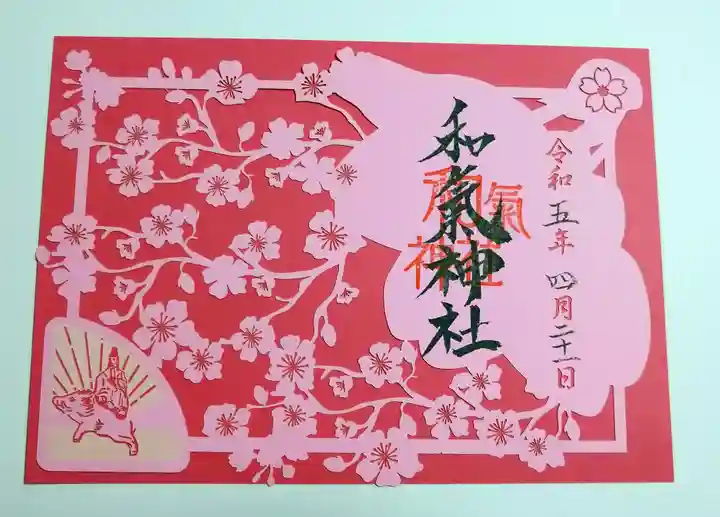 令和五年 四月二十一日
和氣神社
和氣
神社